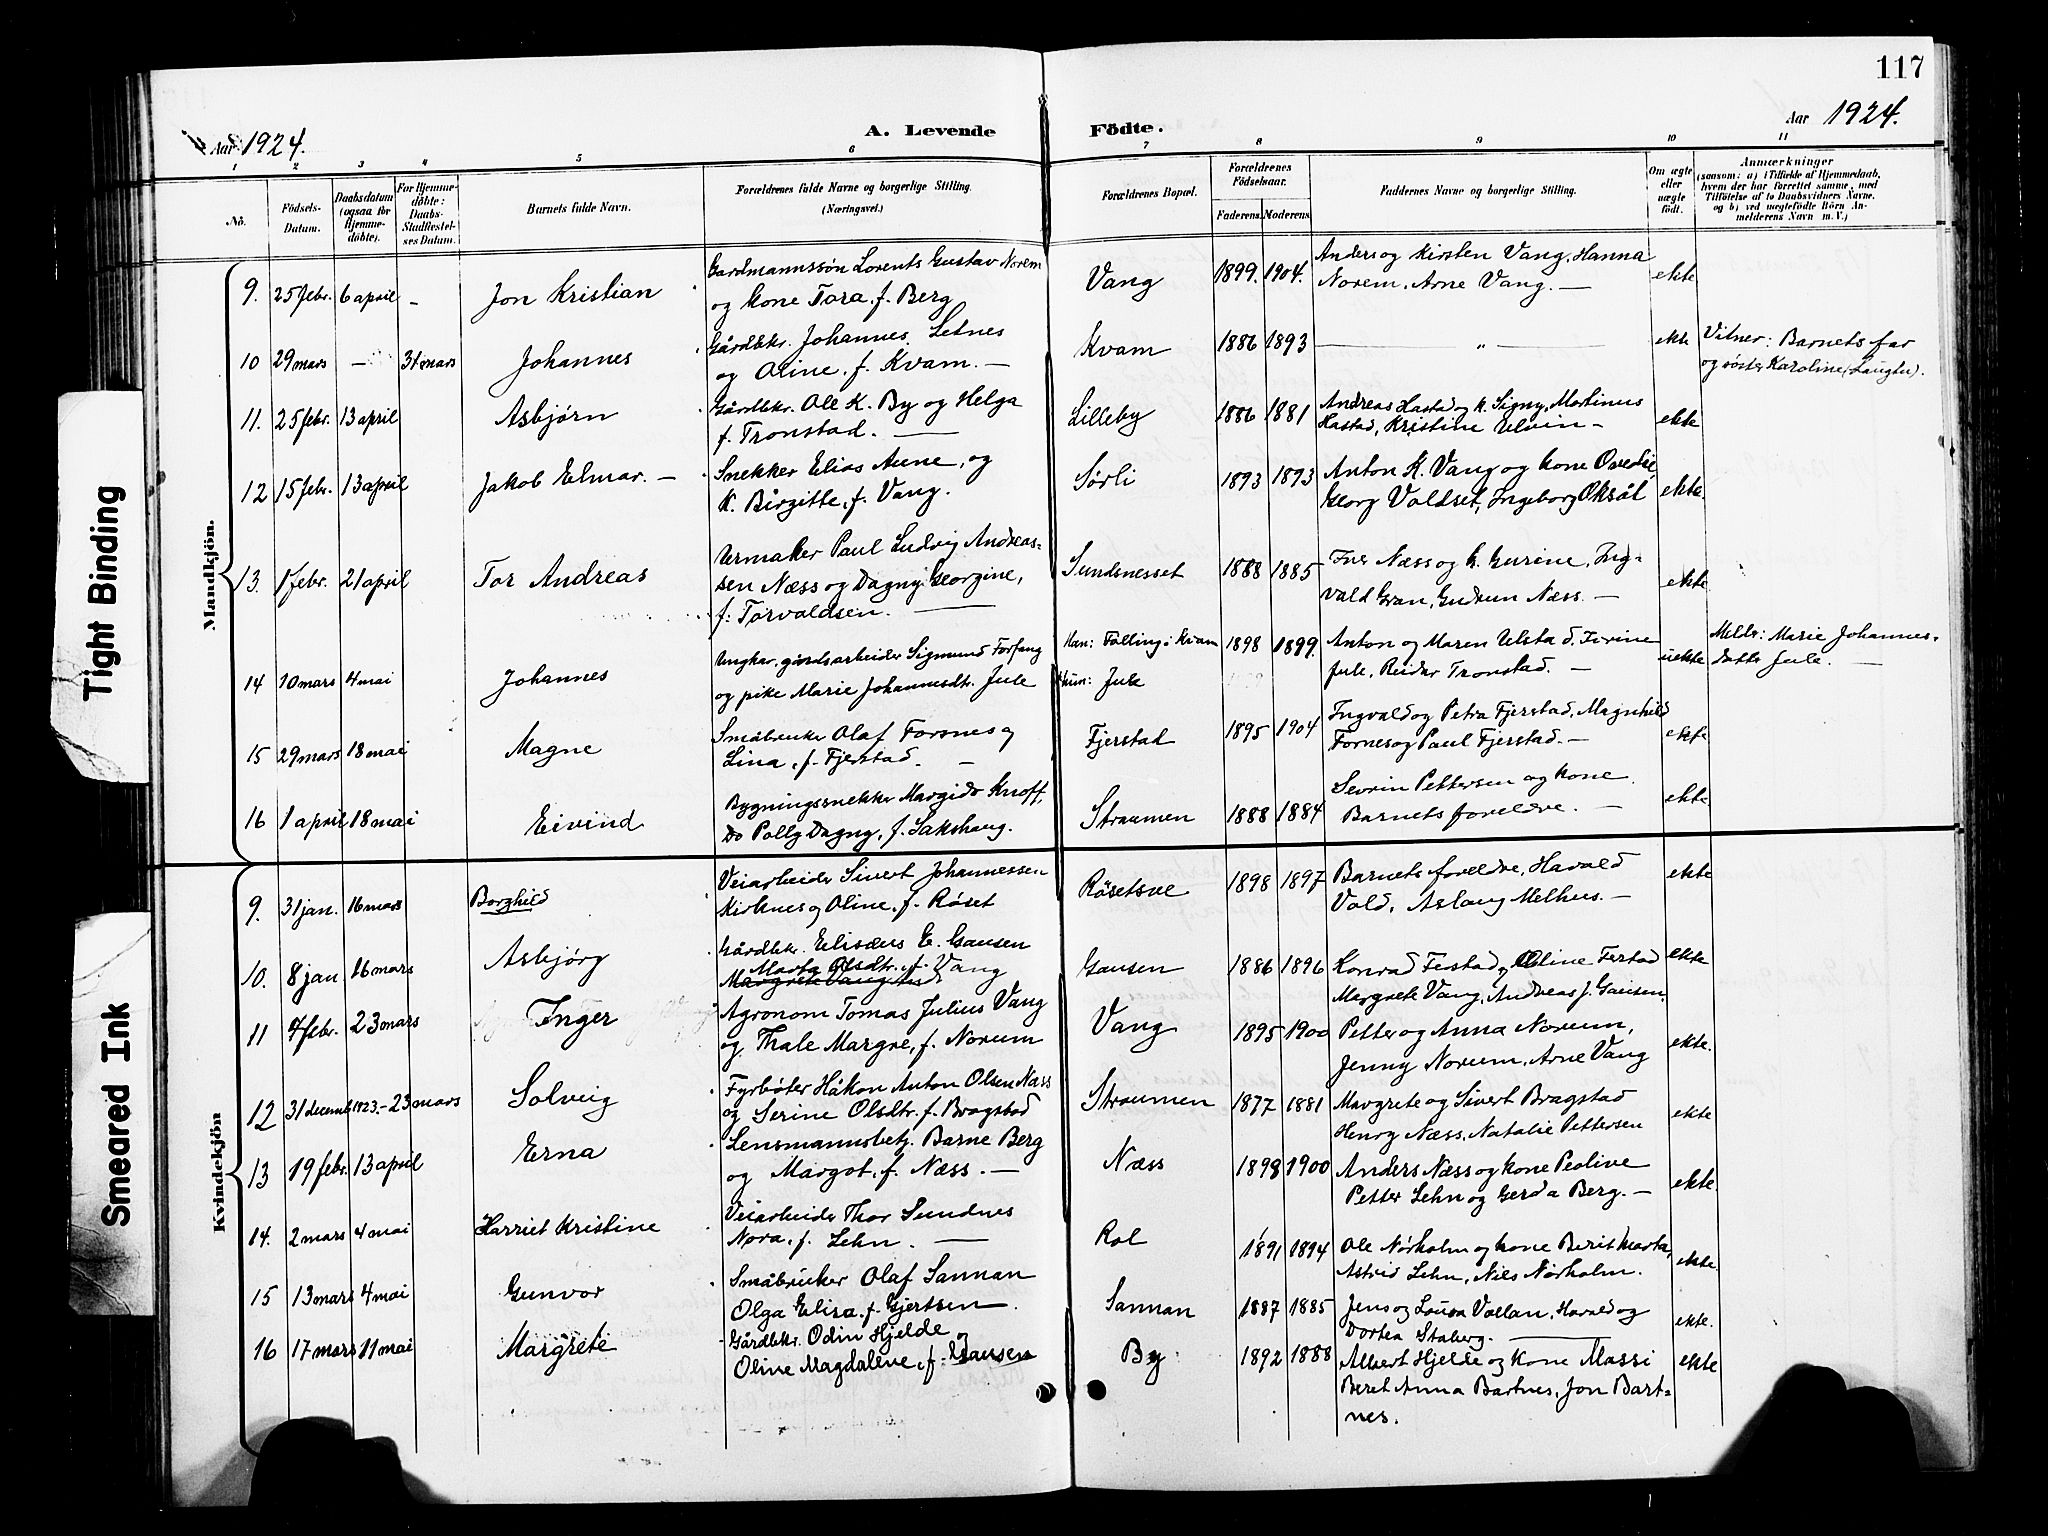 117
Aar 1924.
A. Levende Födte.
Aar 1924.
1 2 3 4 5 6 7 8 9 10 11
No.
Födsels-Datum.
Daabsdatum (ogsaa for Hjemmedöbte).
For Hjemmedöbte: Daabs-Stadfæstelses Datum.
Barnets fulde Navn.
Forældrenes fulde Navne og borgerlige Stilling. (Næringsvei.)
Forældrenes Bopæl.
Forældrenes Födselsaar.
Faderens. Moderens.
Faddernes Navne og borgerlige Stilling.
Om ægte eller uægte födt.
Anmærkninger
(saasom: a) i Tilfælde af Hjemmedaab, hvem der har forrettet samme, med Tilföielse af to Daabsvidners Navne, og b) ved uægtefödte Börn Anmelderens Navn m. V.)
Mandkjön.
9. 25 febr. 6 april – Jon Kristian
Gardmannssøn Lorents Gustav Norem
og kone Tora, f. Berg
Vang 1899. 1904.
Anders og Kirsten Vang, Hanna
Norem, Arne Vang. —
ekte
10 29 mars — 31 mars Johannes
Gårdbkr. Johannes Letnes
og Oline, f. Kvam. —
Kvam 1886 1893 — " — ekte
Vitner: Barnets far
og søster Karoline
11. 25 febr. 13 april Asbjørn
Gårdbkr. Ole K. By og Helga
f. Tronstad. —
Lilleby 1886 1881
Andreas Hastad og k. Signy, Martinus
Hastad, Kristine Ulvin –
ekte
12 15 febr. 13 april Jakob Elmar. —
Snekker Elias Aune, og
K. Birgitte, f. Vang.
Sørli 1893 1893
Anton K. Vang og kone Ovedie,
Georg Valdset, Ingeborg Oksål
ekte.
13. 1 febr. 21 april Tor Andreas
Urmaker Paul Ludvig Andreas-
sen Næss og Dagny Georgine,
f. Torvaldsen. —
Sundnesset 1888 1885
Iver Næss og k. Gurine, Ing-
vald Gran, Gudrun Næss. —
ekte
14 10 mars 4 mai Johannes
Ungkar, gårdsarbeider Sigmund Forfang
og pike Marie Johannesdtr. Jule
Han: Følling i Kvam
Hun: Jule
1898 1899.
Anton og Maren Ulstad, Ivrine
Jule, Reidar Tronstad. —
uekte
Meldr: Marie Johannes-
datter Jule. —
15 29 mars 18 mai Magne
Småbruker Olaf Forsnes og
Lina, f. Fjerstad. —
Fjerstad 1895 1904
Ingvald og Petra Fjerstad, Magnhild
Fornes og Paul Fjerstad. —
ekte
16 1 april 18 mai Eivind
Bygningssnekker Margido Knoff,
Do Polly Dagny, f. Sakshaug.
Straumen 1888 1884
Sevrin Pettersen og kone
Barnets foreldre. —
ekte
Kvindekjön
9. 31 jan. 16 mars Borghild
Veiarbeider Sivert Johannessen
Kirknes og Oline, f. Røset
Røsetsve 1898 1897
Barnets foreldre, Harald
Vold, Aslaug Melhus. —
ekte
10. 8 jan 16 mars Asbjørg
Gårdbkr. Elisæus E. Gausen
Marta Olsdtr. f. Vang
Gausen 1886 1896
Konrad Ferstad og Oline Ferstad
Margrete Vang, Andreas J. Gausen.
ekte
11 7 febr. 23 mars Inger
Agronom Tomas Julius Vang
og Thale Margre, f. Norum
Vang 1895 1900
Petter og Anna Norum,
Jenny Norum, Arne Vang
ekte.
12 31 decemb 1923. – 23 mars Solveig
Fyrbøter Håkon Anton Olsen Næss
og Serine Olsdtr. f. Bragstad
Straumen 1877 1881
Margrete og Sivert Bragstad
Henry Næss, Natalie Pettersen
ekte
13 19 febr. 13 april Erna
Lensmannsbetj. Barne Berg
og Margot, f. Næss. —
Næss 1898 1900
Anders Næss og kone Peolive
Petter Lehn og Gerda Berg. —
ekte.
14. 2 mars 4 mai Harriet Kristine
Veiarbeider Thor Sundnes
Nora, f. Lehn. —
Rol 1891 1894
Ole Nørholm og kone Berit Marta,
Astrid Lehn, Nils Nørholm.
ekte.
15 13 mars 4 mai Gunvor
Småbruker Olaf Sannan
Olga Elisa, f. Gjertsen.
Sannan 1887 1885
Jens og Lovisa Vollan, Harald og
Dortea Staberg. —
ekte.
16 17 mars 11 mai Margrete
Gårdbkr. Odin Hjelde og
Oline Magdalene, f. Gausen
By 1892 1888
Albert Hjelde og kone Massi
Beret Anna Bartnes, Jon Bart-
nes.
ekte
Tight Binding
Smeared Ink